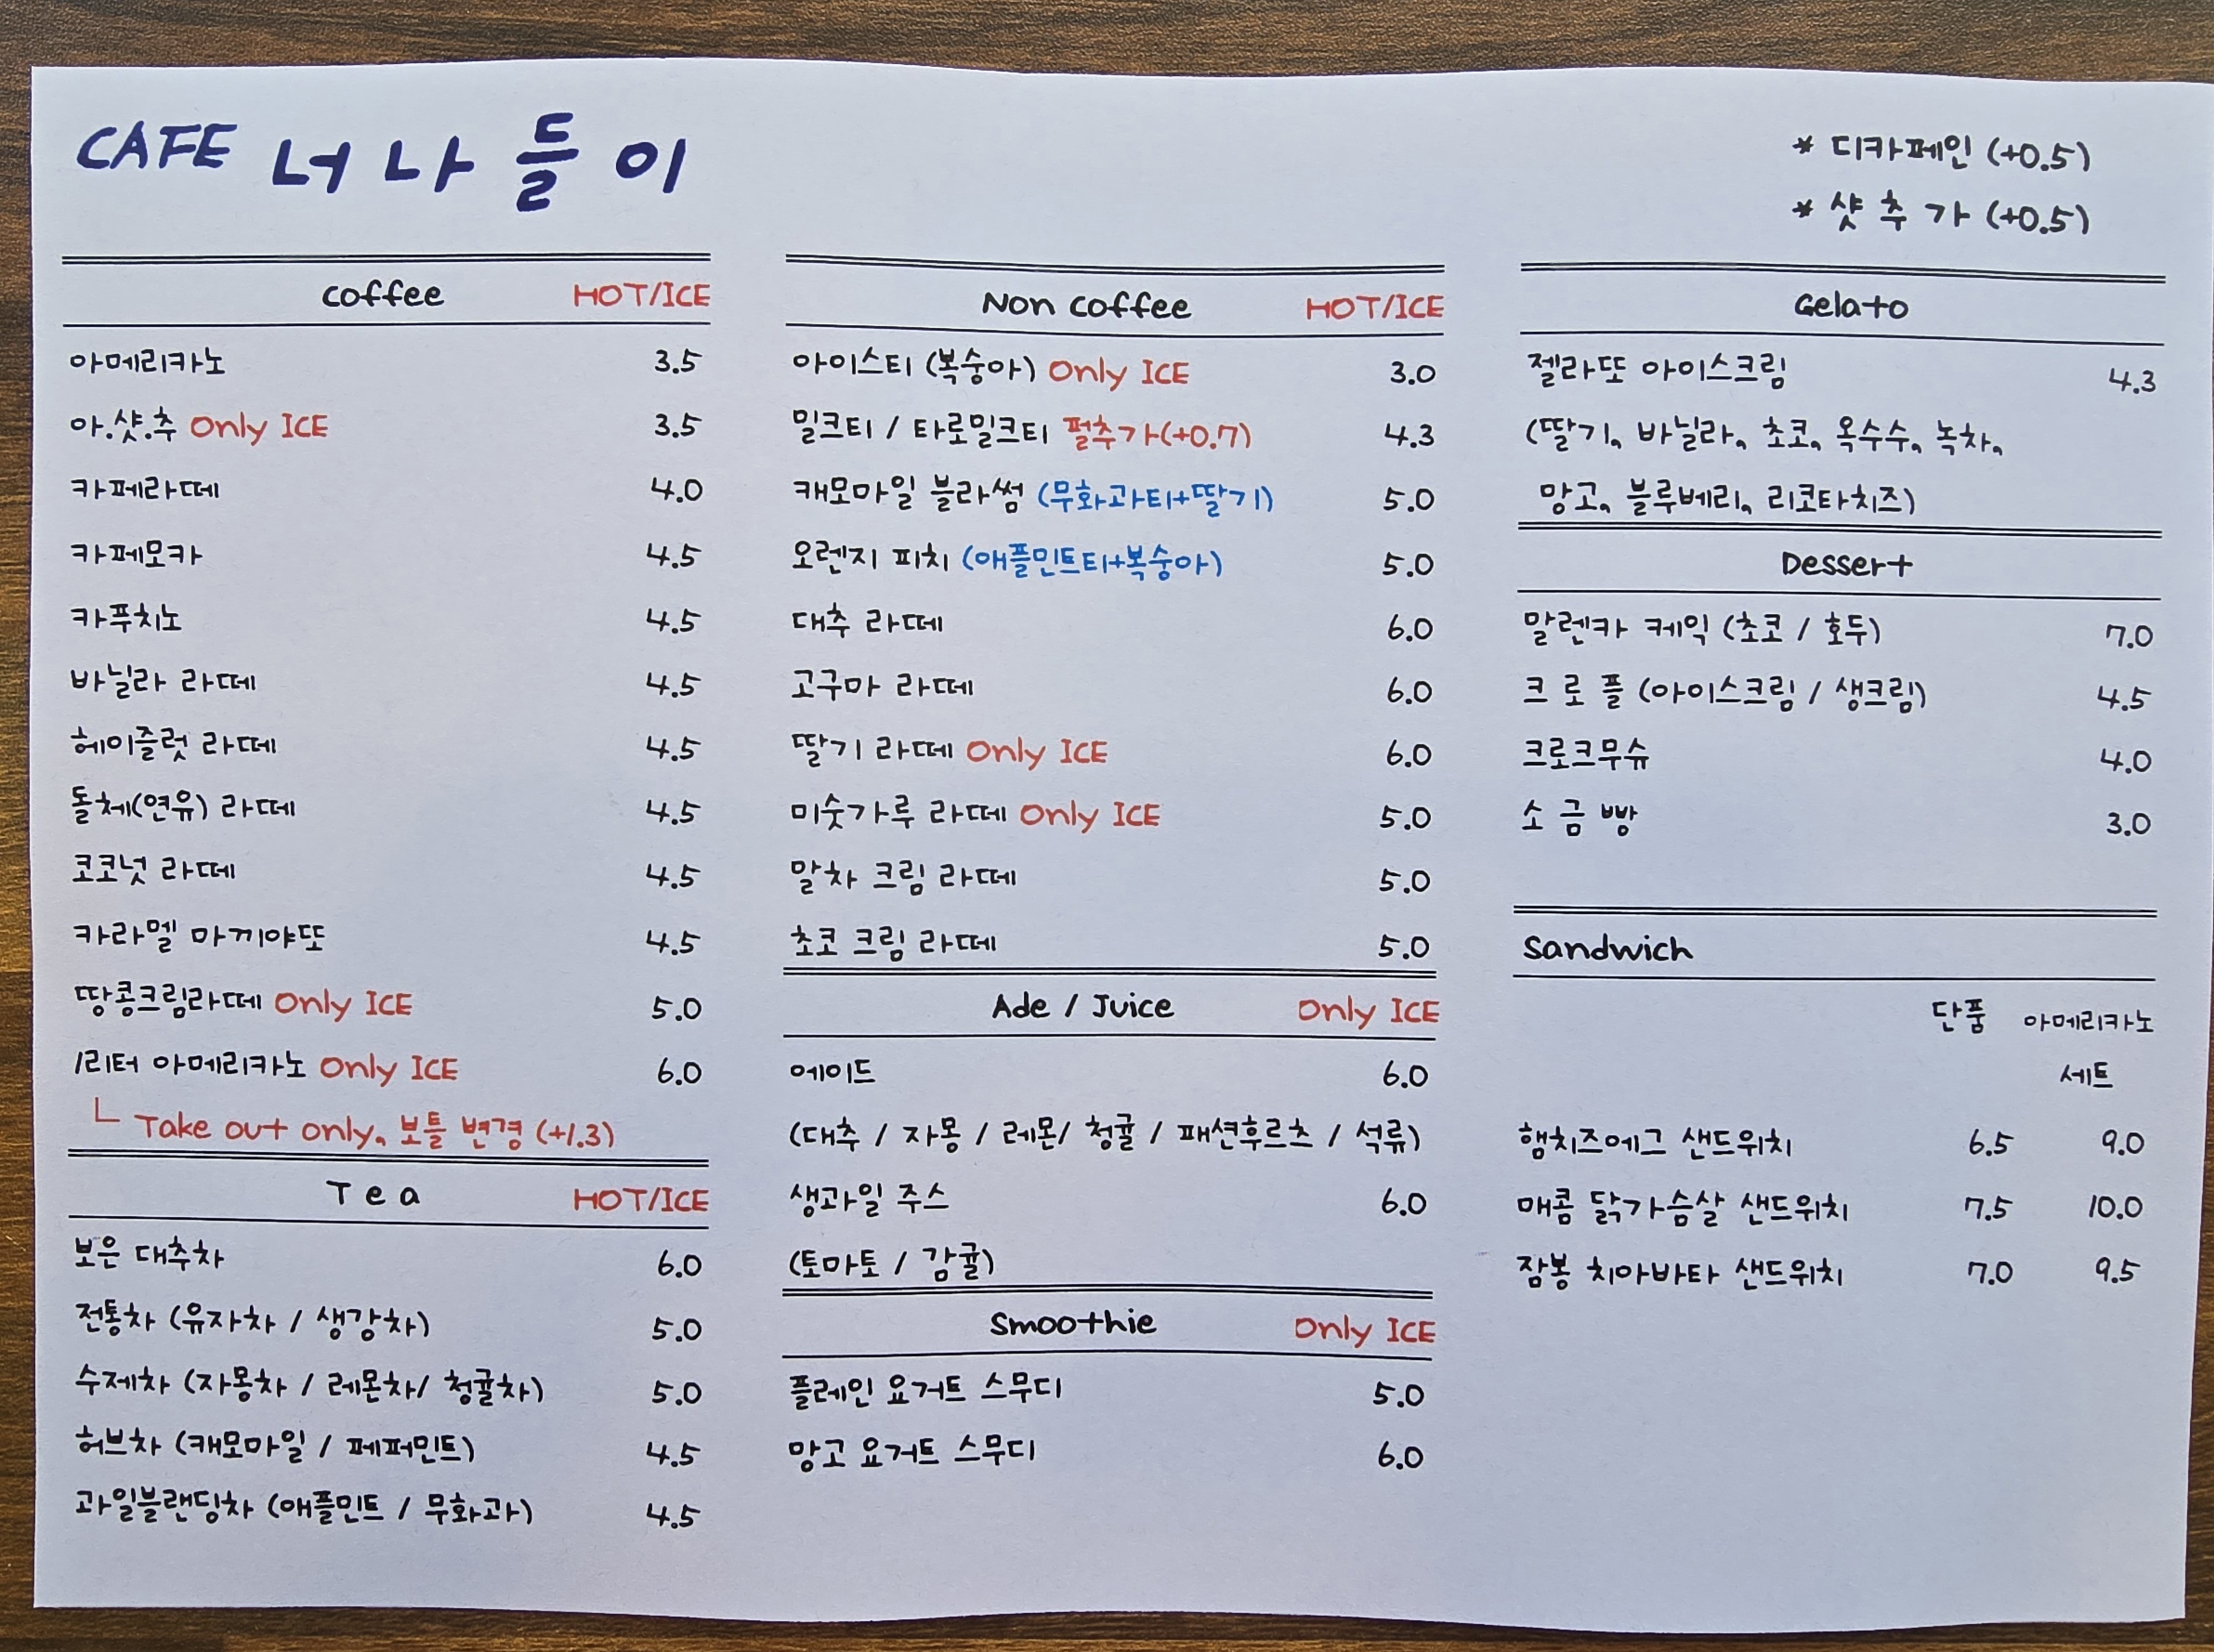 CAFE 너나들이
* 디카페인 (+0.5)
* 샷 추 가 (+0.5)
Coffee HOT/ICE
아메리카노 3.5
아.샷.추 Only ICE 3.5
카페라떼 4.0
카페모카 4.5
카푸치노 4.5
바닐라 라떼 4.5
헤이즐럿 라떼 4.5
돌체(연유) 라떼 4.5
코코넛 라떼 4.5
카라멜 마끼야또 4.5
땅콩크림라떼 Only ICE 5.0
1리터 아메리카노 Only ICE 6.0
└ Take out only, 보틀 변경 (+1.3)
Tea HOT/ICE
보은 대추차 6.0
전통차 (유자차 / 생강차) 5.0
수제차 (자몽차 / 레몬차/ 청귤차) 5.0
허브차 (캐모마일 / 페퍼민트) 4.5
과일블랜딩차 (애플민트 / 무화과) 4.5
Non Coffee HOT/ICE
아이스티 (복숭아) Only ICE 3.0
밀크티 / 타로밀크티 펄추가(+0.7) 4.3
캐모마일 블라썸 (무화과티+딸기) 5.0
오렌지 피치 (애플민트티+복숭아) 5.0
대추 라떼 6.0
고구마 라떼 6.0
딸기 라떼 Only ICE 6.0
미숫가루 라떼 Only ICE 5.0
말차 크림 라떼 5.0
초코 크림 라떼 5.0
Ade / Juice Only ICE
에이드 6.0
(대추 / 자몽 / 레몬/ 청귤 / 패션후르츠 / 석류)
생과일 주스 6.0
(토마토 / 감귤)
Smoothie Only ICE
플레인 요거트 스무디 5.0
망고 요거트 스무디 6.0
Gelato
젤라또 아이스크림 4.3
(딸기, 바닐라, 초코, 옥수수, 녹차,
망고, 블루베리, 리코타치즈)
Dessert
말렌카 케익 (초코 / 호두) 7.0
크 로 플 (아이스크림 / 생크림) 4.5
크로크무슈 4.0
소 금 빵 3.0
Sandwich
단품 아메리카노
세트
햄치즈에그 샌드위치 6.5 9.0
매콤 닭가슴살 샌드위치 7.5 10.0
잠봉 치아바타 샌드위치 7.0 9.5